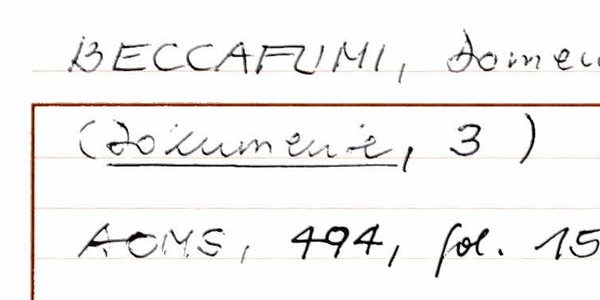 BECCAFUMI, Domen
(Dokumente, 3)
AOMS, 494, fol. 15